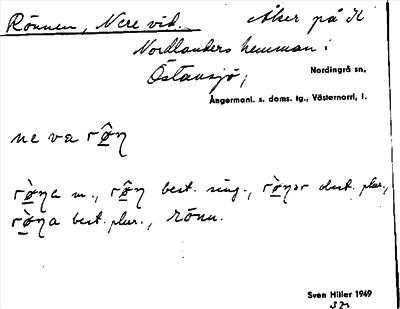 Rönnen, Nere vid. Åker på N
Nordlanders hemman i
Östansjö, Nordingrå sn,
Ångermanl. s. doms. tg., Västernorrl. l.
ne va rö̂ŋ
rö̀ŋa m., rö̂ŋ best. sing., rö̀ŋər obest. plur.,
rö̀ŋa best. plur., rönn.
Sven Hiller 1949